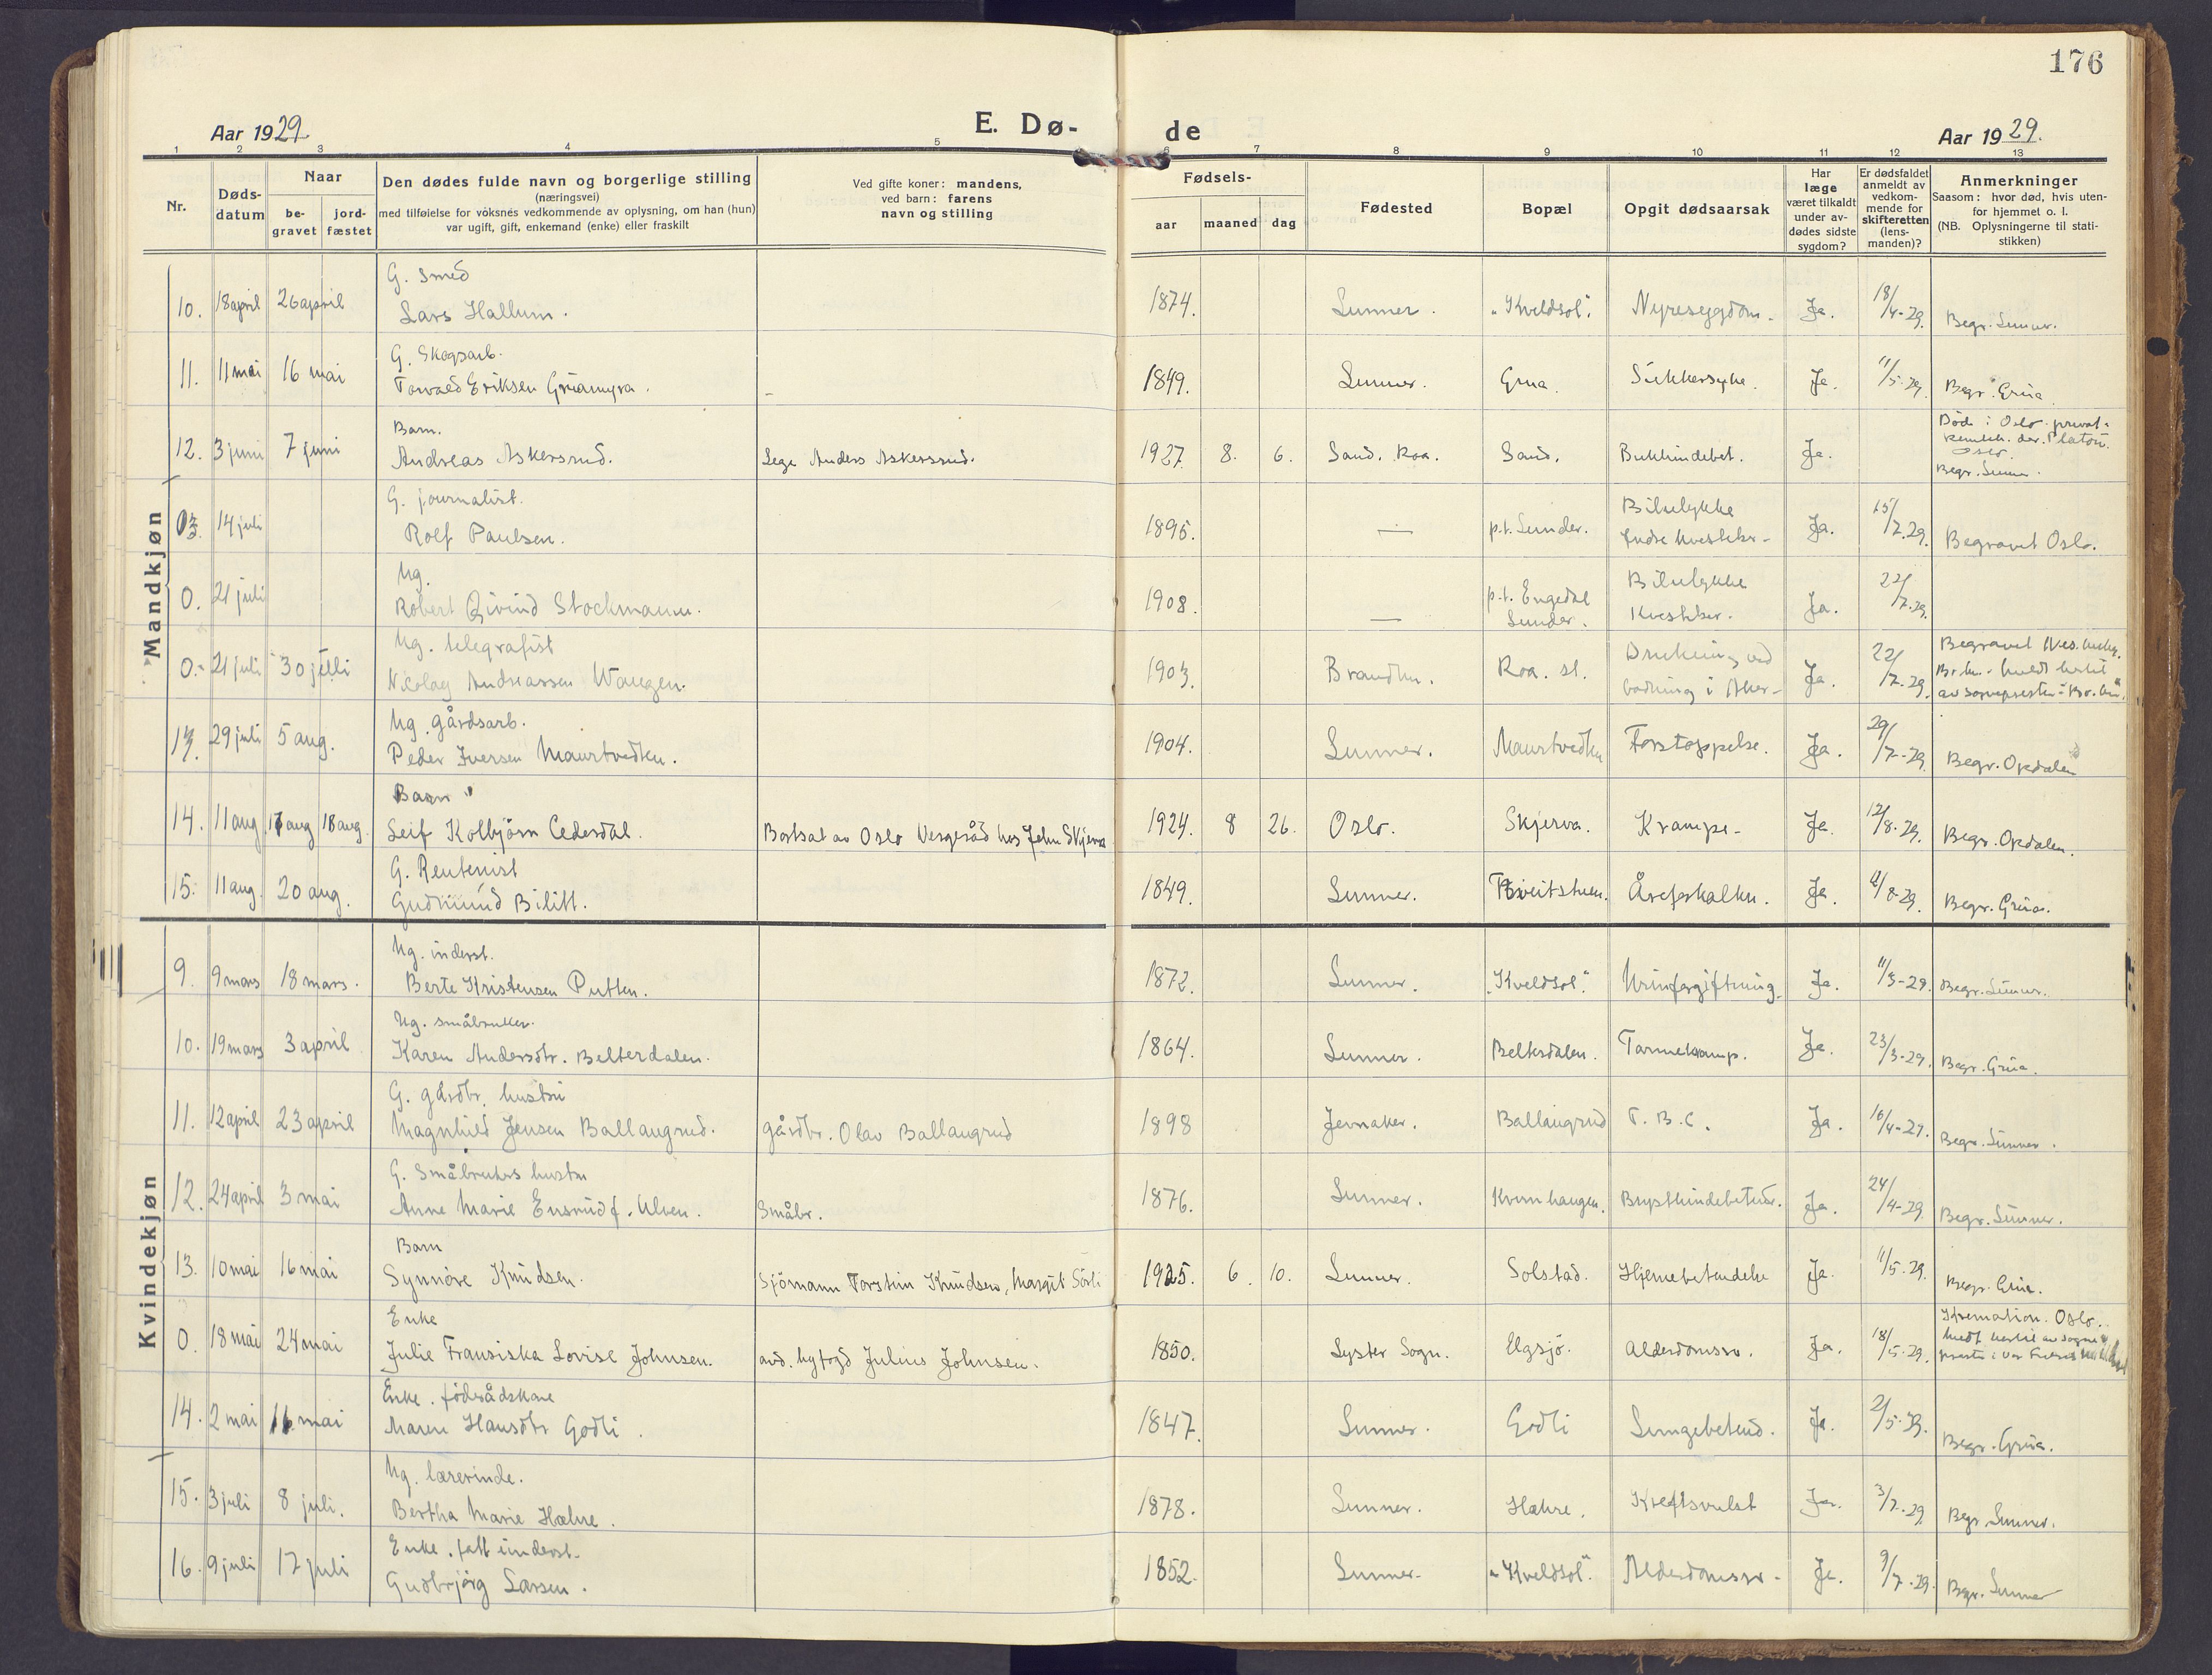 176
Aar 1929
E. Dø-
de
Aar 1929.
1 2 3 4 5 6 7 8 9 10 11 12 13
Nr.
Døds-
datum
Naar
be-
gravet
jord-
fæstet
Den dødes fulde navn og borgerlige stilling
(næringsvei)
med tilføielse for vóksnés vedkommende av oplysning, om han (hun)
var ugift, gift, enkemand (enke) eller fraskilt
Ved gifte koner: mandens,
ved barn: farens
navn og stilling
Fødsels-
aar
maaned
dag
Fødested
Bopæl
Opgit dødsaarsak
Har
læge
været tilkaldt
under av-
dødes sidste
sygdom?
Er dødsfaldet
anmeldt av
vedkom-
mende for
skifteretten
(lens-
manden)?
Anmerkninger
Saasom: hvor død, hvis uten-
for hjemmet o. l.
(NB. Oplysningerne til stati-
stikken)
Mandkjøn
G. Smed
10. 18 april 26 april Lars Hallum. 1874. Lunner. "Kveldsol". Nyresygdom. Ja. 18/4-29. Begr. Lunner.
G. Skogsarb.
11. 11 mai 16 mai Torvald Eriksen Gruamyra. 1849. Lunner. Grua. Sukkersyke. Ja. 11/5-29. Begr. Grua.
Barn.
12. 3 juni 7 juni Andreas Askersrud. Lege Anders Askersrud. 1927. 8. 6. Sand. Roa. Sand. Bukhindebet. Ja.
Død i Oslo privat-
Oslo.
Begr. Lunn.
G. journalist.
0 14 juli Rolf Paulsen. 1895. — p.t. Lunder. Bilulykke
Indre kvestelser- Ja. 15/7.29. Begravet Oslo.
Ug.
0. 21 juli Robert Øivind Stockmann. 1908. — p.t. Engedal
Lunder. Bilulykke
Kvestelser. Ja. 22/7.29.
Ug. telegrafist
0. 21 juli 30 juli Nicolay Andreassen Waagen. 1903. Brandbu. Roa. st. Drukning ved
badning i Aker- Ja. 22/7-29. Begravet
av sognepresten i
Ug. gårdsarb.
13. 29 juli 5 aug. Peder Iversen Maurtvedten. 1904. Lunner. Maurtvedten Forstoppelse. Ja. 29/7-29. Begr. Opdalen
Barn
14. 11 aug. 17 aug 18 aug. Leif Kolbjörn Cedesdal. Bortsat av Oslo Vergeråd hos John Skjerva 1924. 8 26. Oslo. Skjerva. Krampe- Ja. 12/8-29. Begr. Opdalen.
G. Rentenist
15. 11 aug. 20 aug. Gudmund Bilitt. 1849. Lunner. Tveitstuen. Åreforkalkn. Ja /8-29. Begr. Grua.
Kvindekjøn
Ug. inderst.
9. 9 mars 18 mars. Berte Kristensen Putten. 1872. Lunner. "Kveldsol". Urinforgiftning. Ja. 11/3-29. Begr. Lunner.
Ug. småbruker.
10. 19 mars 3 april Karen Andersdtr. Belterdalen. 1864. Lunner. Beltesdalen. Tarmekramp. Ja. 23/3-29. Begr. Grua.
G. gårdbr. hustru
11. 12 april 23 april Magnhild Jensen Ballangrud. gårdbr. Olav Ballangrud 1898 Jevnaker. Ballangrud T. B. C. Ja. 16/4-29. Begr. Lunner.
G. Småbrukers hustru
12. 24 april 3 mai Anne Marie Ensrud f. Ulven. Småbr. 1876. Lunner. Kvernhaugen. Brysthindebetend. Ja. 24/4-29. Begr. Lunner.
Barn
13. 10 mai 16 mai Synnöve Knudsen. Sjömann Torstein Knudsen, Margit Sörli 1925. 6. 10. Lunner. Solstad. Hjernebetendelse Ja. 11/5-29. Begr. Grua.
Enke
0. 18 mai 24 mai Julie Fransiska Lovise Johnsen. avd. byfogd Julius Johnsen. 1850. Lyster Sogn. Elgsjö. Alderdomssv. Ja. 18/5-29. Kremation. Oslo.
Enke. föderådskone
14. 2 mai 11 mai Maren Hansdtr Godli. 1847. Lunner. Godli Lungebetend. Ja. 2/5-29. Begr. Grua.
Ug. lærerinde.
15. 3 juli 8 juli. Bertha Marie Hæhre. 1878. Lunner. Hæhre. Kreftsvulst Ja. 3/7-29. Begr. Lunner.
Enke. fatt. inderst.
16. 9 juli 17 juli Gudbjörg Larsen. 1852. Lunner- "Kveldsol". Alderdomssv- Ja. 9/7-29. Begr. Lunner